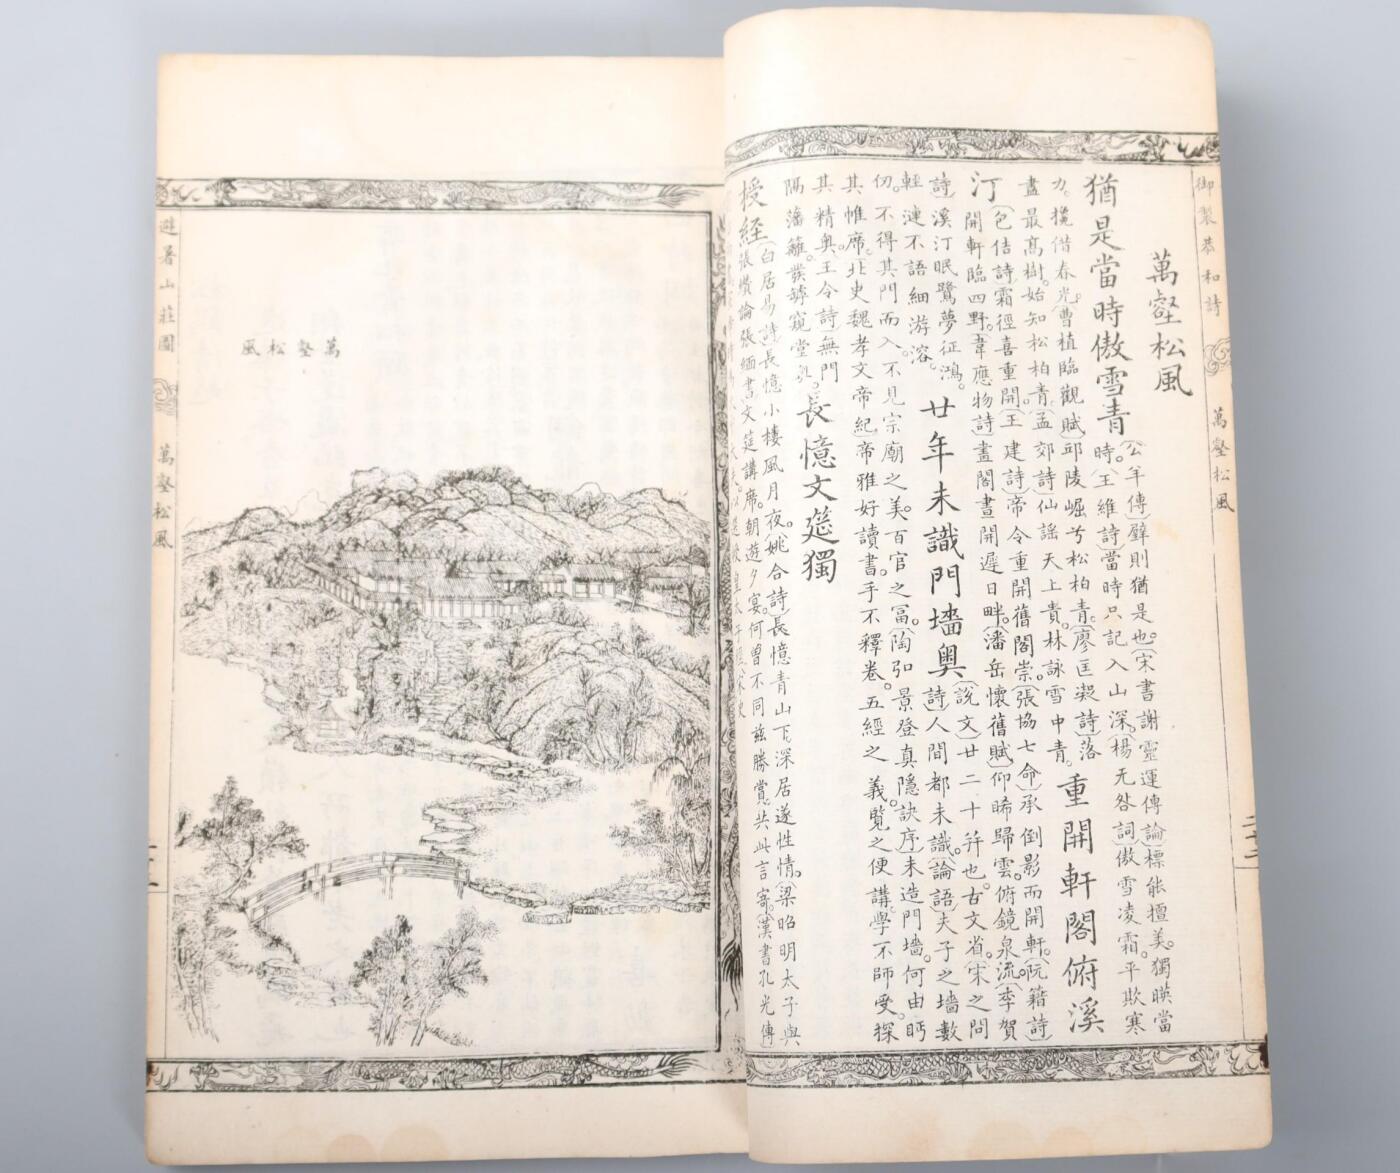 御製恭和詩 萬壑松風
萬壑松風
猶是當時傲雪青
公羊傳辟則猶是也。宋書謝靈運傳論標能擅美。獨暎當
時。王維詩當時只記入山深。楊无咎詞傲雪凌霜。平欺寒
力。攙借春光。曹植臨觀賦邱陵崛兮松柏青。廖匡詩落
盡最高樹。始知松柏青。孟郊詩仙謠天上貴。林詠雪中青。
重開軒閣俯溪
汀
包佶詩霜徑喜重開。王建詩帝令重開舊閣崇。張協七命承倒影而開軒。阮籍詩
開軒臨四野。韋應物詩畫閣晝開遲日畔。潘岳懷舊賦仰睎歸雲。俯鏡泉流。李賀
詩溪汀眠鷺夢征鴻。
輕漣不語細游溶。
廿年未識門墻奥
說文廿二十幷也。古文省。宋之問
詩人間都未識。論語夫子之墻數
仞。不得其門而入。不見宗廟之美。百官之富。陶弘景登真隱訣序未造門墻。何由眄
其惟席。北史魏孝文帝紀帝雅好讀書。手不釋卷。五經之義。覽之便講。學不師受。探
其精奥。王令詩無門
隔藩籬。發罅窺堂奥。
長憶文筵獨
授經
白居易詩長憶小樓風月夜。姚合詩長憶青山下。深居遂性情。梁昭明太子與
張纘論張緬書文筵講席。朝遊夕宴。何曾不同茲勝賞。共此言寄。漢書孔光傳
萬壑松風
避暑山莊圖 萬壑松風